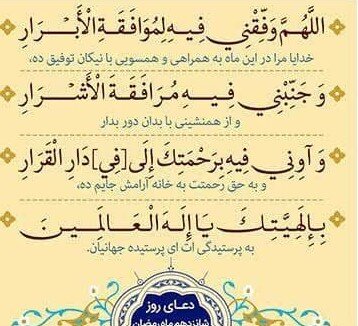 اللَّهُمَّ وَفِّقْنِي فِيهِ لِمُوَافَقَةِ الْأَبْرَارِ
خدایا مرا در این ماه به همراهی و همسویی با نیکان توفیق ده،
وَ جَنِّبْنِي فِيهِ مُرَافَقَةَ الْأَشْرَارِ
و از همنشینی با بدان دور بدار
وَ آوِنِي فِيهِ بِرَحْمَتِكَ إِلَى [فِي] دَارِ الْقَرَارِ
و به حق رحمتت به خانه آرامش جایم ده،
بِإِلَهِيَّتِكَ يَا إِلَهَ الْعَالَمِينَ
به پرستیدگی ات ای پرستیده جهانیان.
دعای روز
شانزدهم ماه رمضان